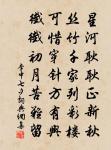 星河耿耿正新秋
丝竹千家列彩楼
可惜穿针方有兴
纤纤初月苦难留
李中七夕诗典网集